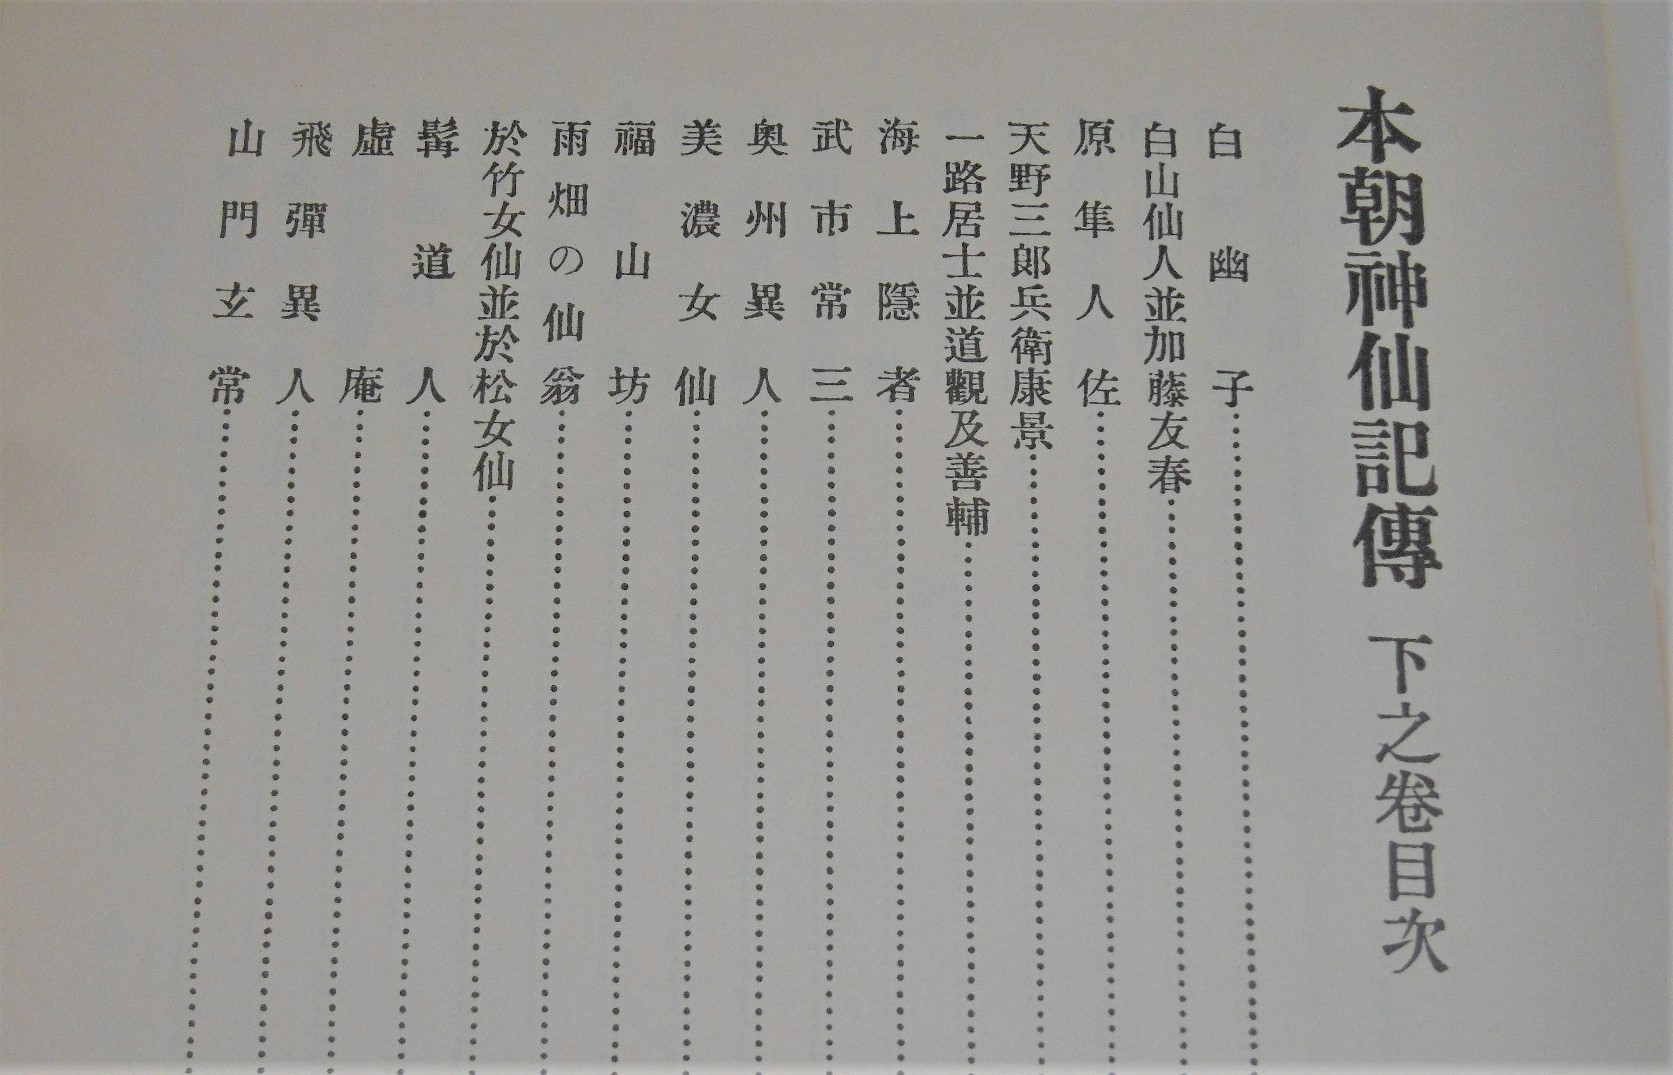 本朝神仙記傳 下之卷目次
白幽子
白山仙人並加藤友春
原隼人佐
天野三郞兵衛康景
一路居士並道觀及善輔
海上隱者
武市常三
奥州異人
美濃女仙
福山坊
雨畑の仙翁
於竹女仙並於松女仙
髯道人
虛庵
飛彈異人
山門玄常